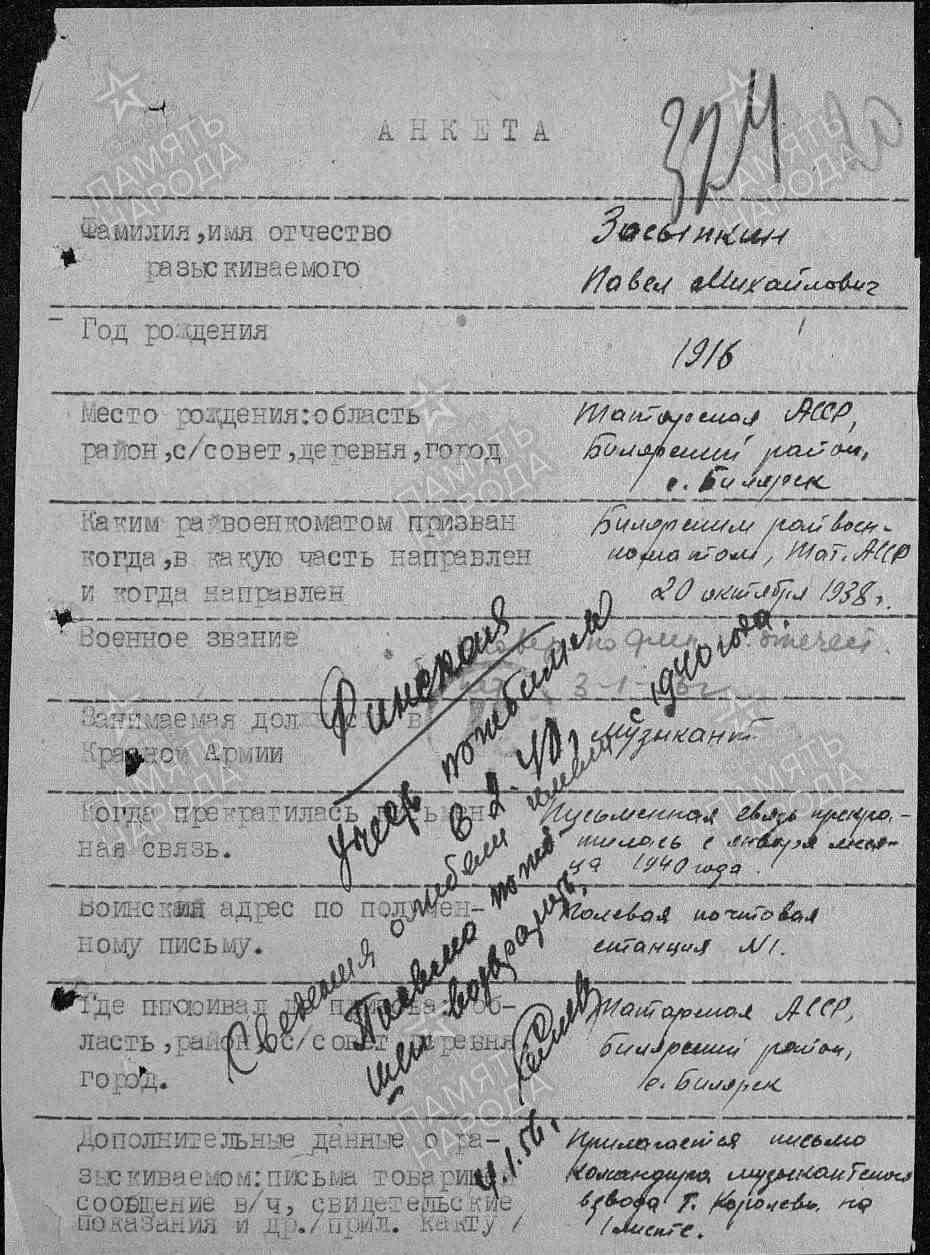 АНКЕТА
374
20
Фамилия,имя отчество
разыскиваемого
Засыпкин
Павел Михайлович
Год рождения
1916
Место рождения:область
район,с/совет,деревня,город
Татарская АССР,
Билярский район,
с. Билярск
Каким райвоенкоматом призван
когда,в какую часть направлен
и когда направлен
Билярским райвоен-
коматом, Тат. АССР
20 октября 1938 г.
Военное звание
Занимаемая в
Красной Армии
музыкант
Когда прекратилась письмен-
ная связь.
Письменная связь прекра-
тилась с января меся-
ца 1940 года.
Воинский адрес по получен-
ному письму.
Полевая почтовая
станция №1.
Где проживал до призыва: об-
ласть,район с/совет деревня
город.
Татарская АССР,
Билярский район,
с. Билярск
Дополнительные данные о ра-
зыскиваемом:письма товарищ
сообщение в/ч, свидетельские
показания и др./прил. какту/
Прилагается письмо
командира музыкантского
взвода т. Королева на
1 листе.
Финская
учесть погибшим
в 2.40,
Сведения о гибели имеем с 1940 года.
Письмо
возвратить.
4.1.56,
ПАМЯТЬ
НАРОДА
ПАМЯТЬ
НАРОДА
ПАМЯТЬ
НАРОДА
ПАМЯТЬ
НАРОДА
ПАМЯТЬ
НАРОДА
ПАМЯТЬ
НАРОДА